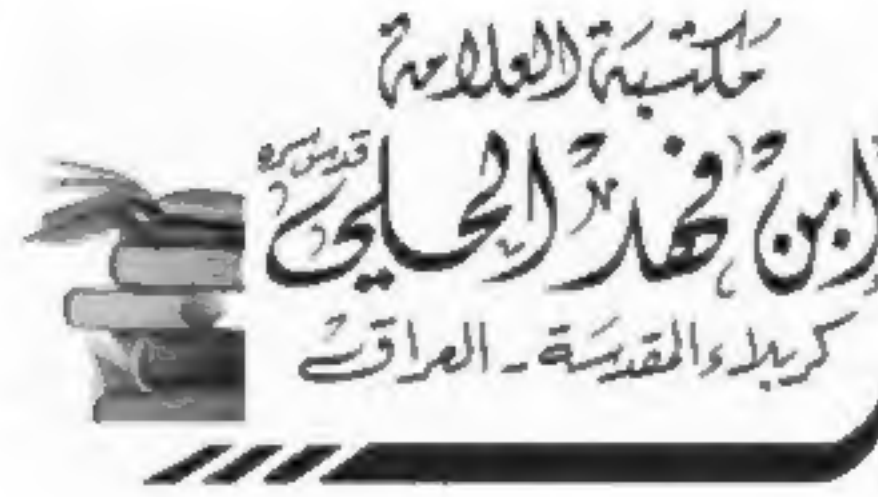 مكتبة العلامة
ابن فهد الحلي قدس سره
كربلاء المقدسة - العراق